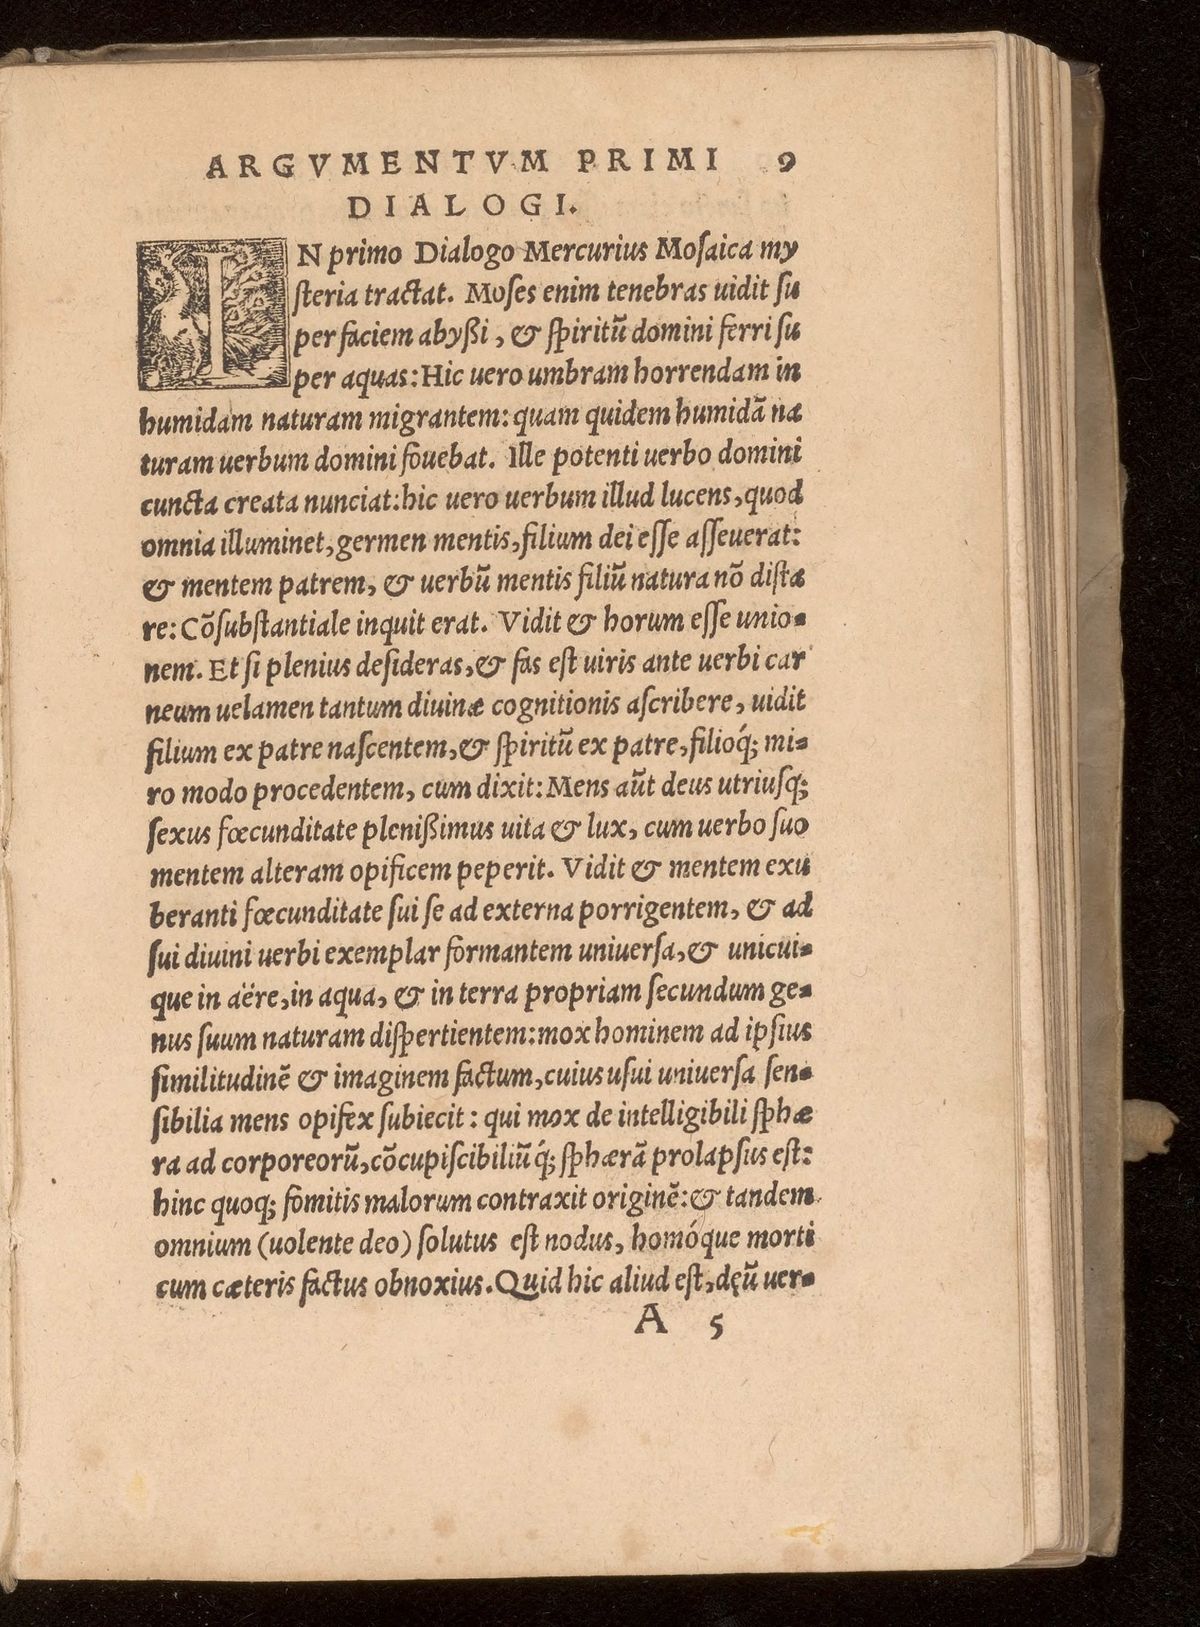 ARGVMENTVM PRIMI 9
DIALOGI.
IN primo Dialogo Mercurius Mosaica my
ſteria tractat. Moſes enim tenebras uidit ſu
per faciem abyßi, & ſpiritũ domini ferri ſu
per aquas: Hic uero umbram horrendam in
humidam naturam migrantem: quam quidem humidã na
turam uerbum domini fouebat. Ille potenti uerbo domini
cuncta creata nunciat: hic uero uerbum illud lucens, quod
omnia illuminet, germen mentis, filium dei eſſe aſſeuerat:
& mentem patrem, & uerbũ mentis filiũ natura nõ diſta
re: Cõſubſtantiale inquit erat. Vidit & horum eſſe unio-
nem. Et ſi plenius deſideras, & fas eſt uiris ante uerbi car
neum uelamen tantum diuinæ cognitionis aſcribere, uidit
filium ex patre naſcentem, & ſpiritũ ex patre, filioq́; mi-
ro modo procedentem, cum dixit: Mens aũt deus utriuſq;
ſexus fœcunditate plenißimus uita & lux, cum uerbo ſuo
mentem alteram opificem peperit. Vidit & mentem exu
beranti fœcunditate ſui ſe ad externa porrigentem, & ad
ſui diuini uerbi exemplar formantem uniuerſa, & unicui-
que in aëre, in aqua, & in terra propriam ſecundum ge-
nus ſuum naturam diſpertientem: mox hominem ad ipſius
ſimilitudinẽ & imaginem factum, cuius uſui uniuerſa ſen-
ſibilia mens opifex ſubiecit: qui mox de intelligibili ſphæ
ra ad corporeorũ, cõcupiſcibiliũq́; ſphærã prolapſus eſt:
hinc quoq; fomitis malorum contraxit originẽ: & tandem
omnium (uolente deo) ſolutus eſt nodus, homóque morti
cum cæteris factus obnoxius. Quid hic aliud eſt, dęũ uer-
A 5